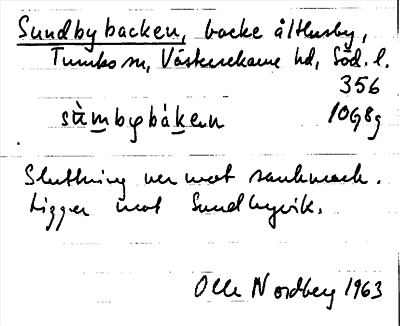 Sundbybacken, backe å Husby,
Tumbo sn, Västerrekarne hd, Söd. l.
356
sùmbybáken 10G8g
Sluttning ner mot sankmark.
Ligger mot Sundbyvik.
Olle Nordberg 1963